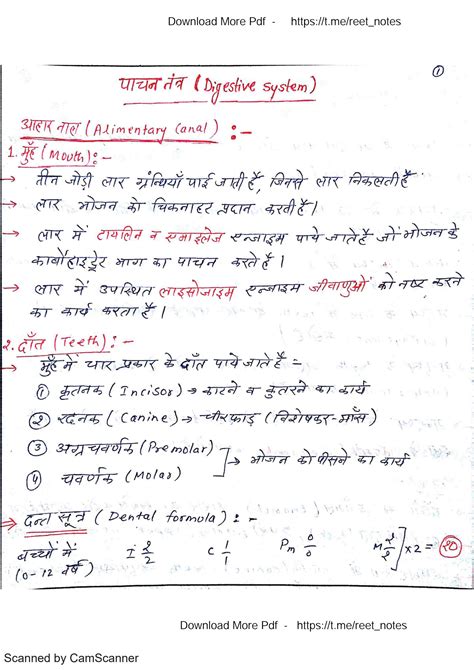 Download More Pdf - https://t.me/reet_notes
①
पाचन तंत्र (Digestive system)
आहार नाल (Alimentary Canal) :-
1. मुँह (Mouth):-
→ तीन जोड़ी लार ग्रंथियाँ पाई जाती है, जिनसे लार निकलती है
→ लार भोजन को चिकनाहट प्रदान करती है।
→ लार में टायलिन व एमाइलेज एन्जाइम पाये जाते है जो भोजन के
कार्बोहाइड्रेट भाग का पाचन करते है।
→ लार में उपस्थित लाइसोजाइम एन्जाइम जीवाणुओं को नष्ट करने
का कार्य करता है।
2. दाँत (Teeth):-
→ मुँह में चार प्रकार के दाँत पाये जाते है =
① कृतनक (Incisor) → काटने व कुतरने का कार्य
② रदनक (Canine) → चीरफाड़ (विशेषकर-माँस)
③ अग्रचवर्णक (Premolar)
④ चवर्णक (Molar)
→ भोजन को पीसने का कार्य
→ दन्त सूत्र (Dental formola) :-
बच्चों में (0-12 वर्ष) I 2/2 C 1/1 Pm 0/0 M 2/2 ] x2 = 20
Download More Pdf - https://t.me/reet_notes
Scanned by CamScanner